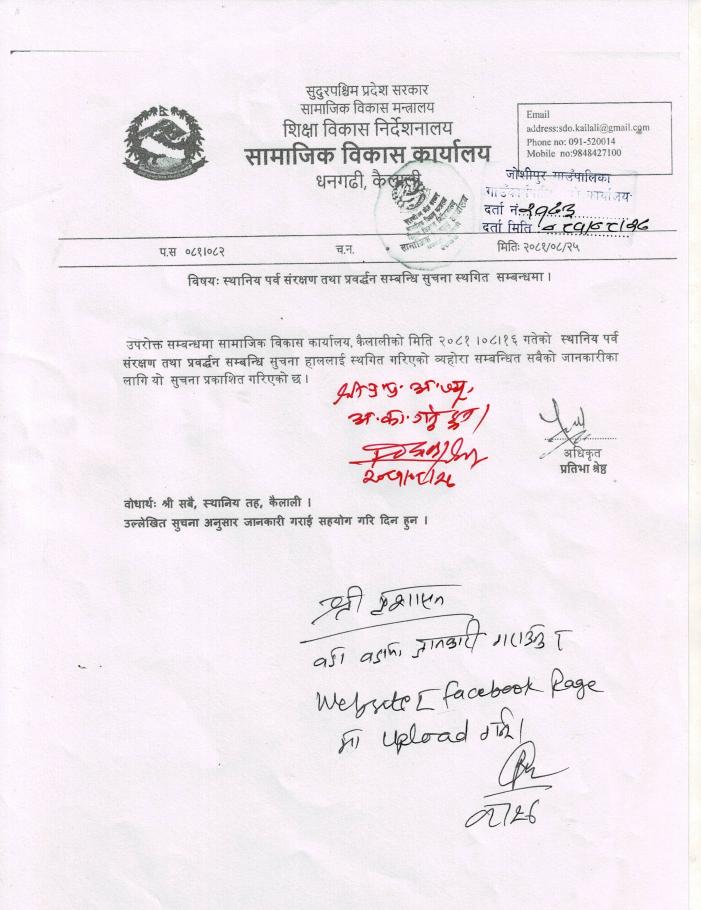 सुदुरपश्चिम प्रदेश सरकार
सामाजिक विकास मन्त्रालय
शिक्षा विकास निर्देशनालय
सामाजिक विकास कार्यालय
धनगढी, कैलाली
Email
address:sdo.kailali@gmail.com
Phone no: 091-520014
Mobile no:9848427100
जोशीपुर गाउँपालिका
कार्यालय
दर्ता नं.
दर्ता मिति
प.स ०८१।०८२ च.न. मितिः २०८१/०८/२५
विषयः स्थानिय पर्व संरक्षण तथा प्रवर्द्धन सम्बन्धि सुचना स्थगित सम्बन्धमा ।
उपरोक्त सम्बन्धमा सामाजिक विकास कार्यालय, कैलालीको मिति २०८१ ।०८।१६ गतेको स्थानिय पर्व
संरक्षण तथा प्रवर्द्धन सम्बन्धि सुचना हाललाई स्थगित गरिएको व्यहोरा सम्बन्धित सबैको जानकारीका
लागि यो सुचना प्रकाशित गरिएको छ ।
अधिकृत
प्रतिभा श्रेष्ठ
वोधार्थः श्री सबै, स्थानिय तह, कैलाली ।
उल्लेखित सुचना अनुसार जानकारी गराई सहयोग गरि दिन हुन ।
श्री प्रशासन
जानकारी गराउनु र
Website र facebook Page
मा upload गर्ने।